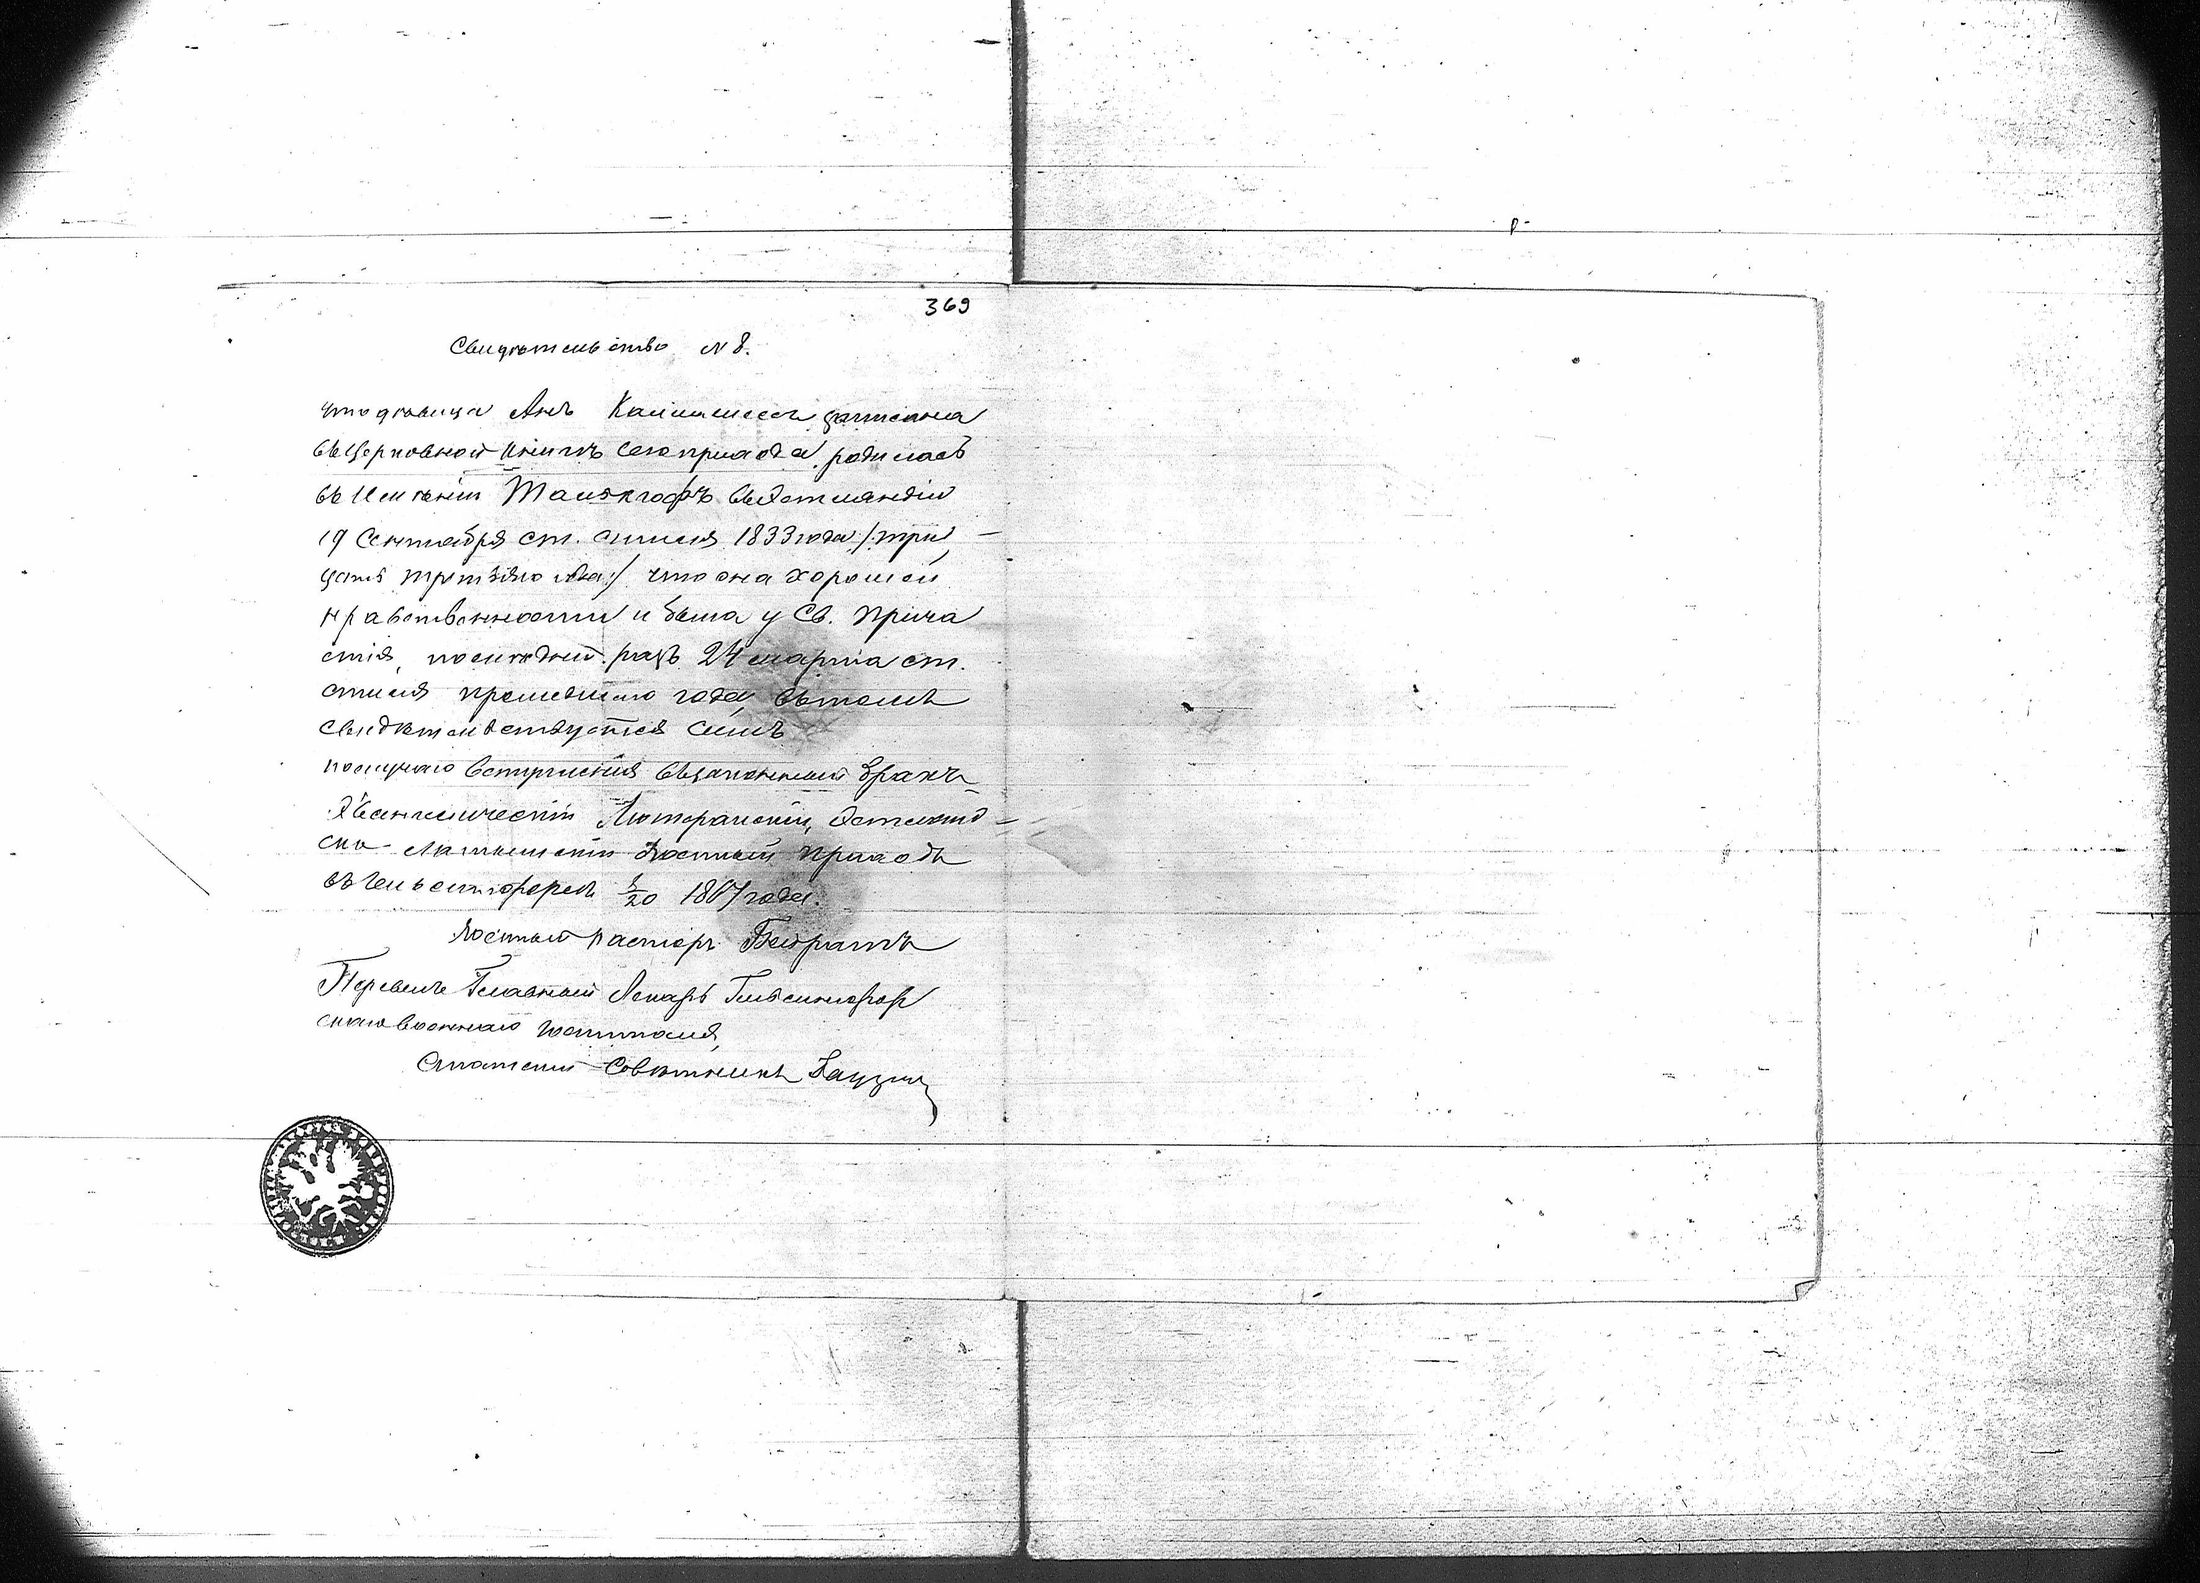 369
Свидѣтельство N 8.
что дѣвица Анъ записана
въ Церковной книгѣ сего прихода, родилась
въ Имѣніи въ Эстляндіи
19 Сентября ст. стиля 1833 года /: три
цать третьяго года :/ что она хорошей
нравственности и была у Св. Прича
стія, послѣдній разъ 24 марта ст.
стиля прошедшаго года, въ томъ
свидѣтельствуется симъ
по случаю вступленія въ законный бракъ
Эвангелическій Лютеранскій, Эстлянд
ско Латышскій Военный приходъ
въ Гельсингфорсѣ 8/20 года.
Военный пасторъ
Перевелъ Главный Лекарь Гельсингфор
скаго военнаго госпиталя,
Статскій Совѣтникъ